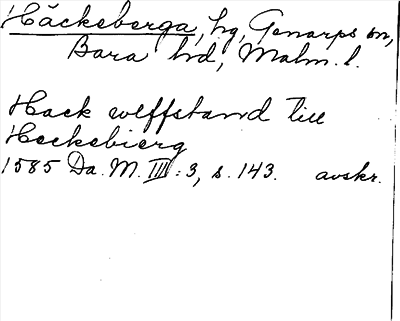 Häckeberga, hg, Genarps sn,
Bara hd, Malm. l.
Hack wlffstand till
Heckebierg
1585 Da. M. III:3, s. 143. avskr.